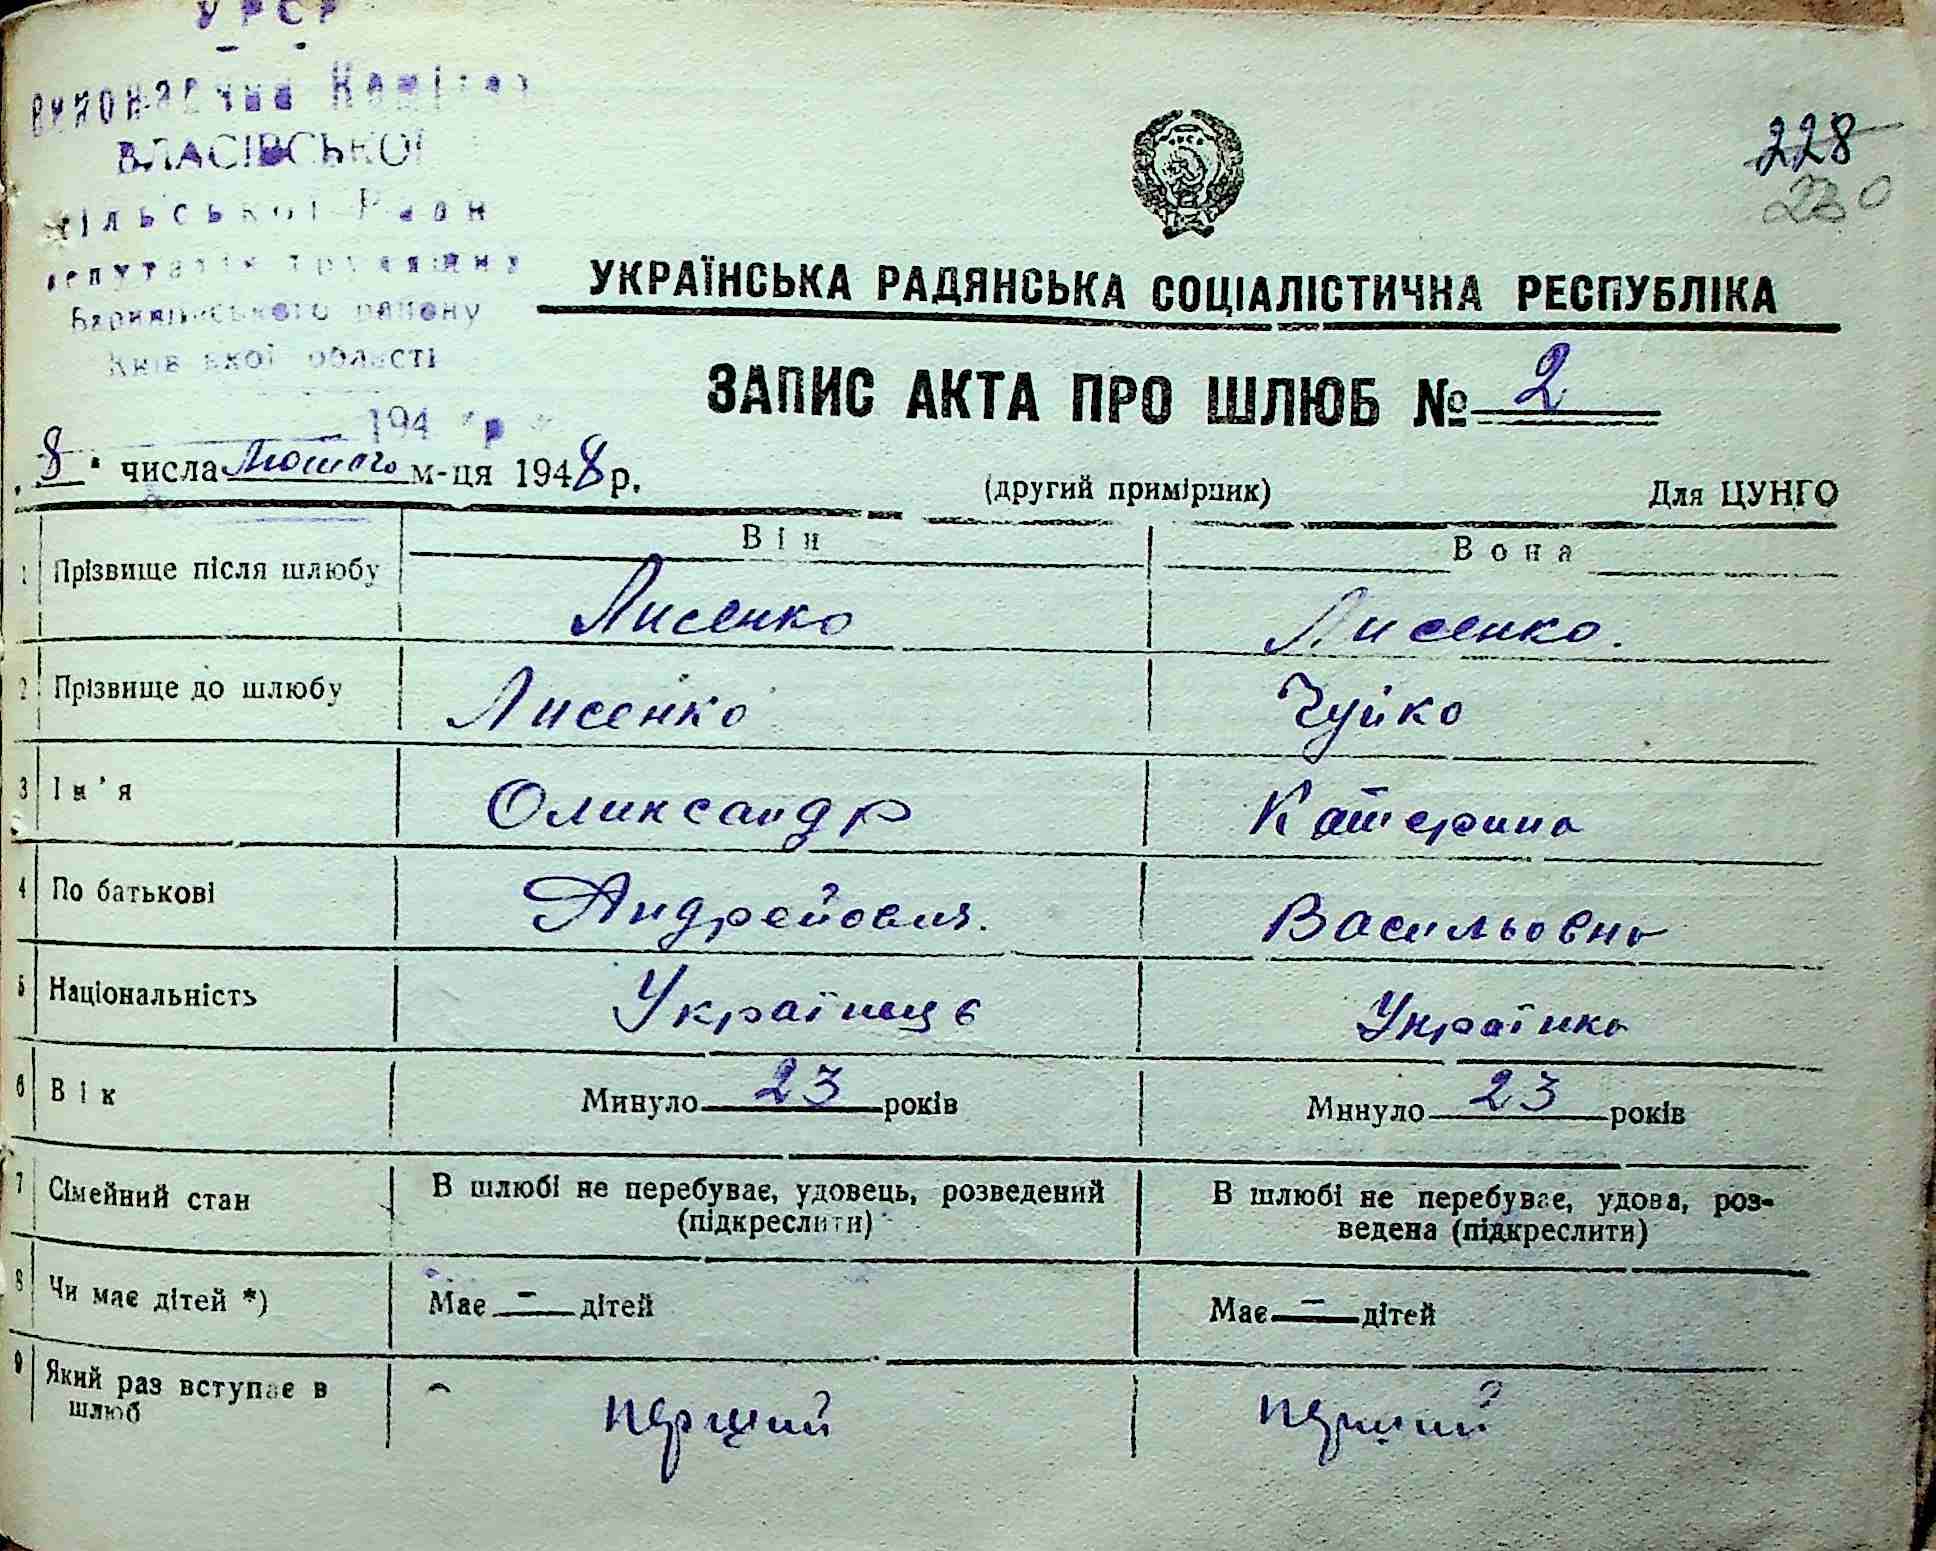 УРСР
Виконавчий Комітет
ВЛАСІВСЬКОЇ
сільської Ради
депутатів трудящих
Баришівського району
Київської області
194 р
228
230
УКРАЇНСЬКА РАДЯНСЬКА СОЦІАЛІСТИЧНА РЕСПУБЛІКА
ЗАПИС АКТА ПРО ШЛЮБ № 2
„8" числа Лютого м-ця 1948 р.
(другий примірник)
Для ЦУНГО
Він Вона
1 Прізвище після шлюбу Лисенко Лисенко.
2 Прізвище до шлюбу Лисенко Чуйко
3 Ім'я Олександр Катерина
4 По батькові Андрейович. Васильовна
5 Національність Українець Українка
6 Вік Минуло 23 років Минуло 23 років
7 Сімейний стан В шлюбі не перебуває, удовець, розведений В шлюбі не перебуває, удова, роз-
(підкреслити) ведена (підкреслити)
8 Чи має дітей *) Має — дітей Має — дітей
9 Який раз вступає в
шлюб перший перший